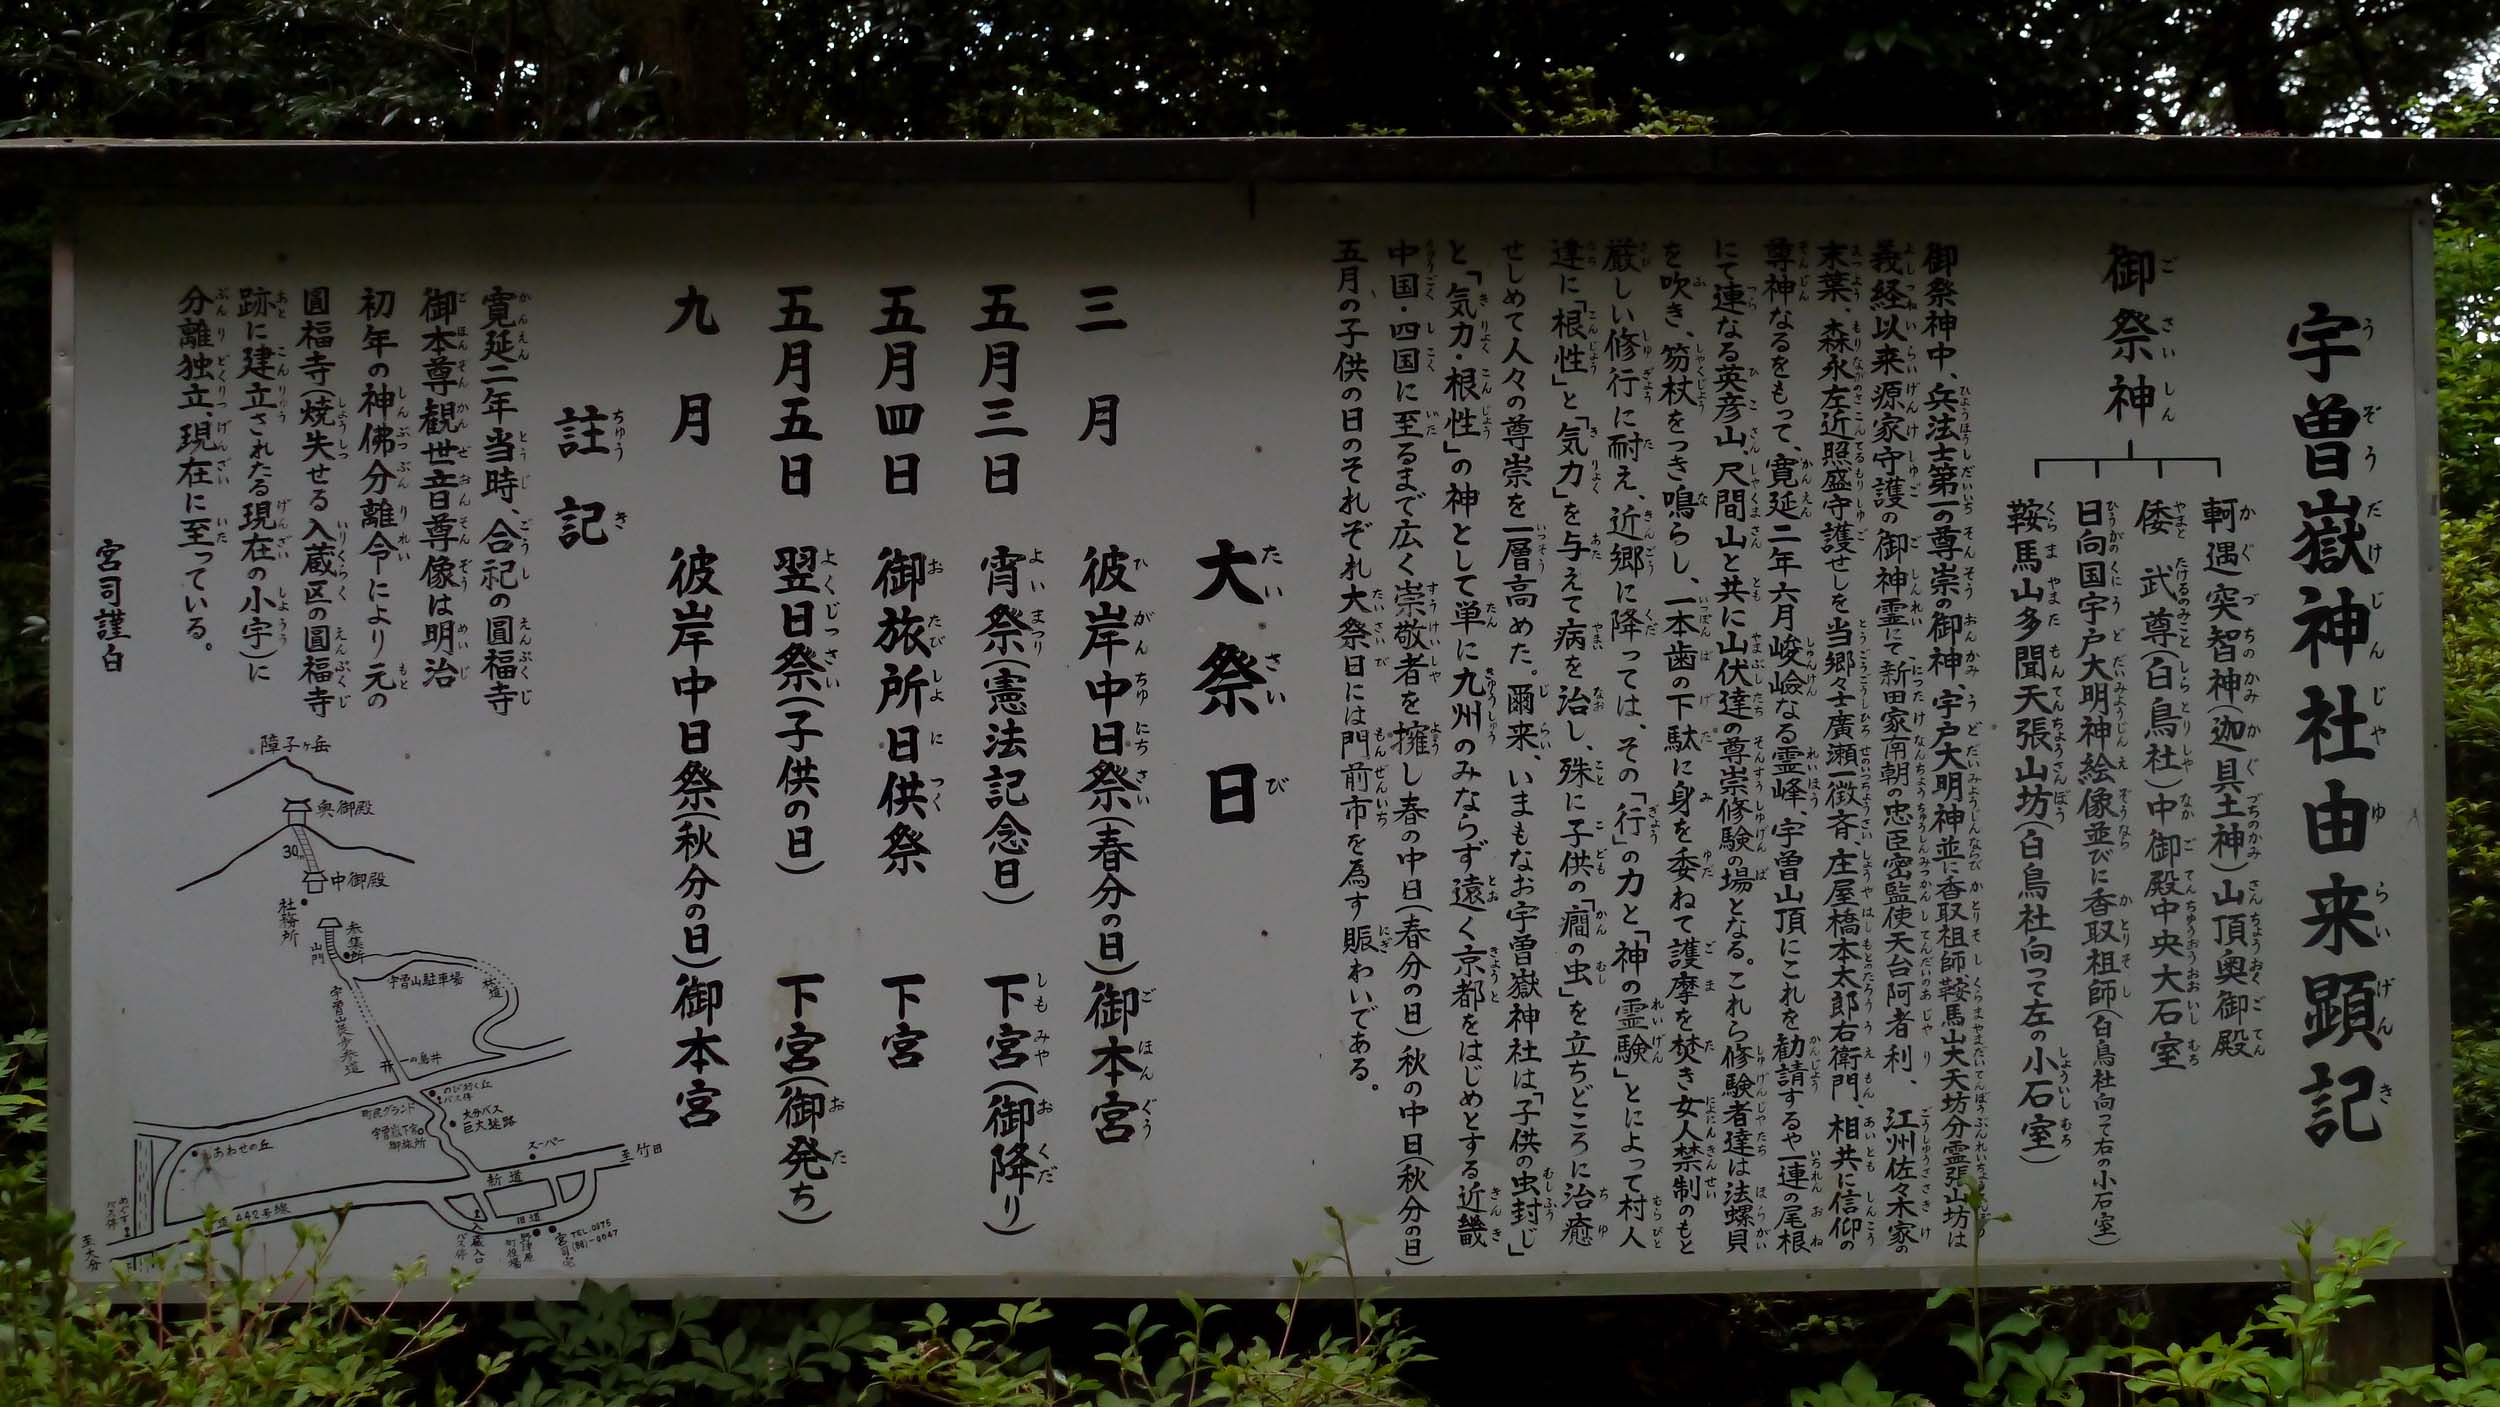 宇曽嶽神社由来顕記
御祭神
軻遇突智神(迦具土神)山頂奥御殿
倭武尊(白鳥社)中御殿中央大石室
日向国宇戸大明神絵像並びに香取祖師(白鳥社向って右の小石室)
鞍馬山多聞天張山坊(白鳥社向って左の小石室)
御祭神中、兵法士第一の尊崇の御神、宇戸大明神並に香取祖師、鞍馬山大天坊分霊張山坊は
義経以来源家守護の御神霊にて、新田家南朝の忠臣密監使天台阿者利、江州佐々木家の
末葉、森永左近照盛守護せしを当郷々士廣瀬一徴斉、庄屋橋本太郎右衛門、相共に信仰の
尊神なるをもって、寛延二年六月峻嶮なる霊峰、宇曽山頂にこれを勧請するや一連の尾根
にて連なる英彦山、尺間山と共に山伏達の尊崇修験の場となる。これら修験者達は法螺貝
を吹き、笏杖をつき鳴らし、一本歯の下駄に身を委ねて護摩を焚き女人禁制のもと
厳しい修行に耐え、近郷に降っては、その「行」の力と「神の霊験」とによって村人
達に「根性」と「気力」を与えて病を治し、殊に子供の「癇の虫」を立ちどころに治癒
せしめて人々の尊崇を一層高めた。爾来、いまもなお宇曽嶽神社は「子供の虫封じ」
と「気力・根性」の神として単に九州のみならず遠く京都をはじめとする近畿
中国・四国に至るまで広く崇敬者を擁し春の中日(春分の日)秋の中日(秋分の日)
五月の子供の日のそれぞれ大祭日には門前市を為す賑わいである。
大祭日
三月 彼岸中日祭(春分の日)御本宮
五月三日 宵祭(憲法記念日) 下宮(御降り)
五月四日 御旅所日供祭 下宮
五月五日 翌日祭(子供の日) 下宮(御発ち)
九月 彼岸中日祭(秋分の日)御本宮
註記
寛延二年当時、合祀の圓福寺
御本尊観世音尊像は明治
初年の神佛分離令により元の
圓福寺(焼失せる入蔵区の圓福寺
跡に建立されたる現在の小宇)に
分離独立、現在に至っている。
宮司謹白
障子ヶ岳
奥御殿
30m
中御殿
社務所
参集所
山門
宇曽山駐車場
林道
宇曽山徒歩参道
一の鳥居
のび行く丘
バス停
町民グランド
大分バス
巨大迷路
宇曽嶽下宮
御旅所
しあわせの丘
スーパー
至竹田
新道
旧道
道442号線
バス停
入蔵入口
バス停
野津原
町役場
宮司宅
TEL.0975
(88)-0047
至大分